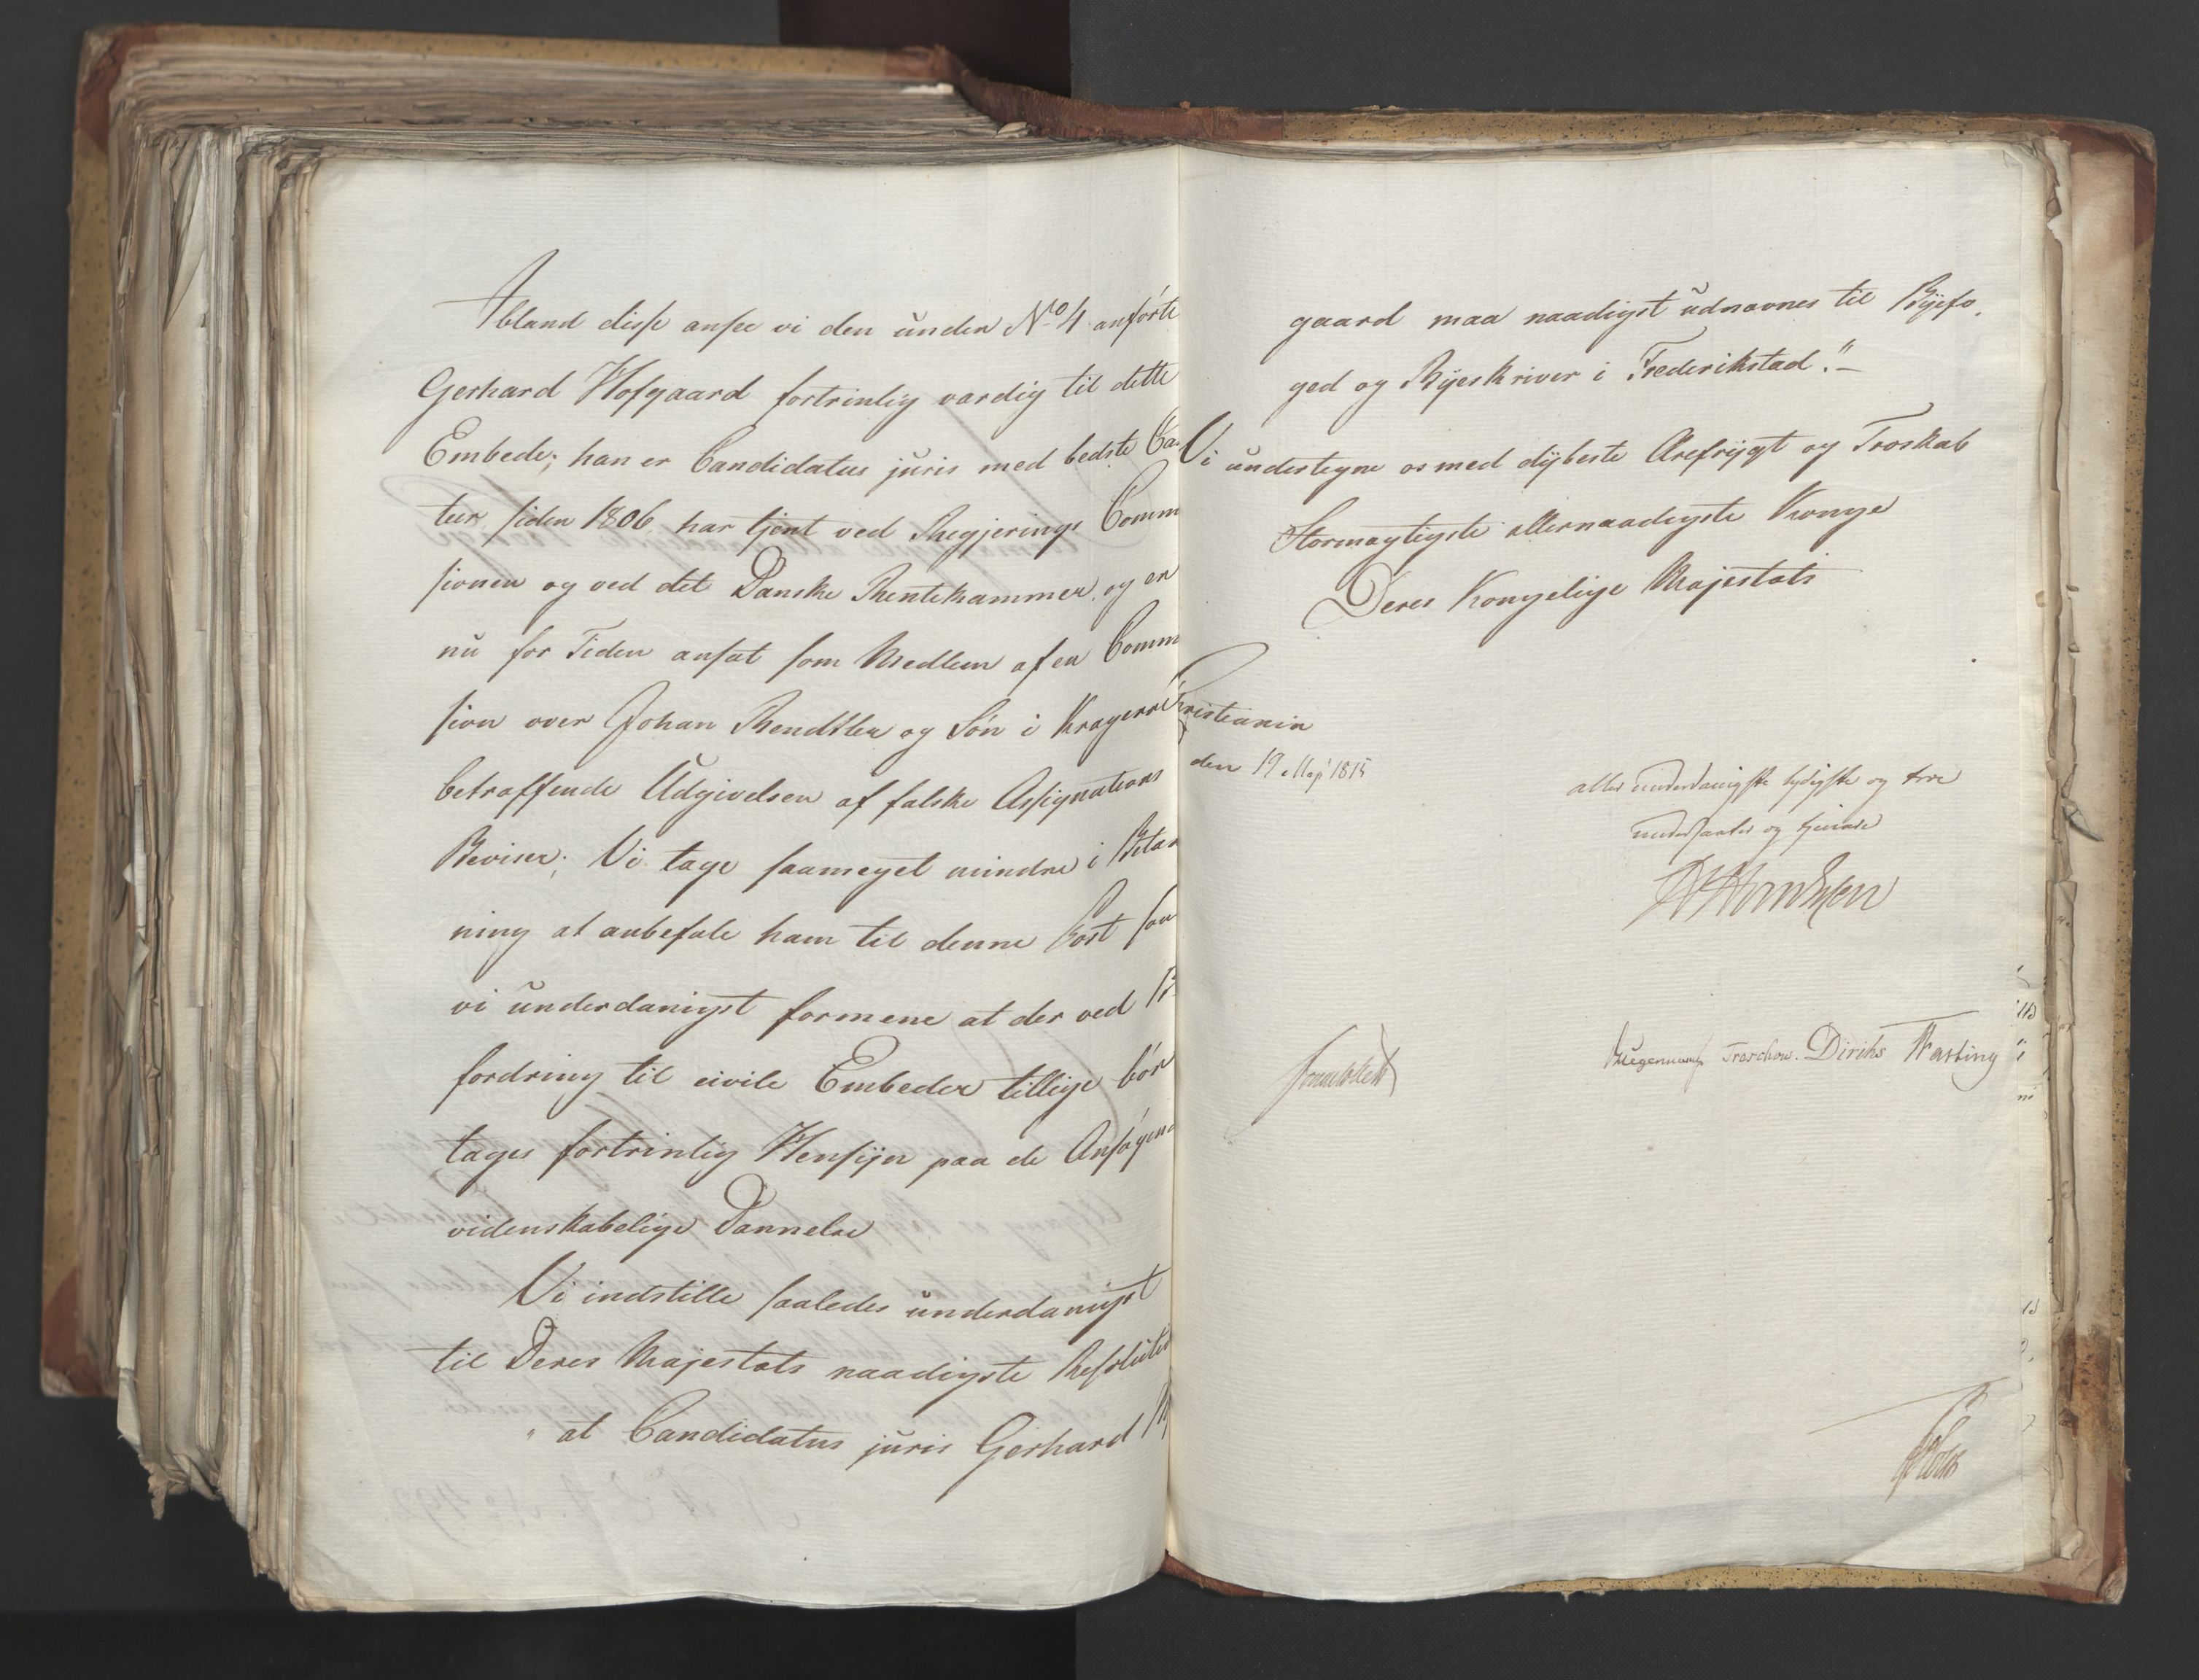 Ibland disse ansee vi den under No 4 anførte
Gerhard Hofgaard fortrinlig værdig til dette
Embede; han er Candidatus juris med bedste Ca
teer siden 1806, har tjent ved Regjerings Comm
sionen og ved det Danske Rentekammer, og er
nu for Tiden ansat som Medlem af en Comm
sion over Johan og Søn i Kragerøe
betræffende Udgivelsen af falske Assignations
Beviser; Vi tage saameget mindre i Betæn
ning at anbefale ham til denne Post som
vi underdanigst formene at der ved B
fordring til civile Embeder tillige bør
tages fortrinlig Hensyn paa de Ansøgend
videnskabelige Dannelse
Vi indstille saaledes underdanigst
til Deres Majestæts naadigste Resolutio
" at Candidatus juris Gerhard H
gaard maa naadigst udnævnes til Byefo,
ged og Byeskriver i Frederikstad." —
Vi undertegne os med dybeste Ærefrygt og Troskab
Stormægtigste allernaadigste Konge
Deres Kongelige Majestæts
Christiania
den 19 May 1815
allerunderdanigste lydigste og troe
undersaatter og tjenere
Sommerfeldt
Treschow. Diriks Fasting